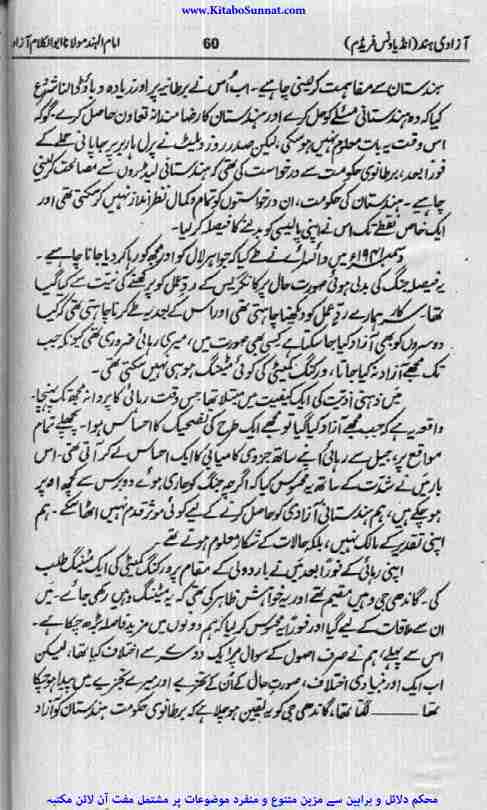 www.KitaboSunnat.com
آزادی ہند (انڈیا ونس فریڈم) 60 امام الہند مولانا ابوالکلام آزاد
ہندستان سے مفاہمت کر لینی چاہیے۔ اب اُس نے برطانیہ پر اور زیادہ دباؤ ڈالنا شروع
کیا کہ وہ ہندستانی مسئلے کو حل کرے اور ہندستان کا رضا مندانہ تعاون حاصل کرے۔ گو کہ
اس وقت یہ بات معلوم نہیں ہو سکی، لیکن صدر روز ویلیٹ نے پرل ہاربر پر جاپانی حملے کے
فوراً بعد، برطانوی حکومت سے درخواست کی تھی کہ ہندستانی لیڈروں سے مصالحت کر لینی
چاہیے۔ ہندستان کی حکومت، ان درخواستوں کو تمام و کمال نظر انداز نہیں کر سکتی تھی اور
ایک خاص نقطے تک اس نے اپنی پالیسی کو بدلنے کا فیصلہ کر لیا۔
دسمبر ۱۹۴۱ء میں وائسرائے نے طے کیا کہ جواہر لال کو اور مجھ کو رہا کر دیا جانا چاہیے۔
یہ فیصلہ جنگ کی بدلی ہوئی صورت حال پر کانگریس کے ردِ عمل کو پرکھنے کی نیت سے کیا گیا
تھا۔ سرکار ہمارے ردِ عمل کو دیکھنا چاہتی تھی اور اس کے بعد یہ طے کرنا چاہتی تھی کہ کیا
دوسروں کو بھی آزاد کیا جا سکتا ہے کسی بھی صورت میں، میری رہائی ضروری تھی کیونکہ جب
تک مجھے آزاد نہ کیا جاتا، ورکنگ کمیٹی کی کوئی میٹنگ ہو ہی نہیں سکتی تھی۔
میں ذہنی اذیت کی ایک کیفیت میں مبتلا تھا جس وقت رہائی کا پروانہ مجھ تک پہنچا۔
واقعہ یہ ہے کہ جب مجھے آزاد کیا گیا تو مجھے ایک طرح کی تضحیک کا احساس ہوا۔ پچھلے تمام
مواقع پر، جیل سے رہائی اپنے ساتھ جزوی کامیابی کا ایک احساس لے کر آئی تھی۔ اس
بار میں نے شدت کے ساتھ یہ محسوس کیا کہ اگرچہ جنگ کو جاری ہوئے دو برس سے کچھ اوپر
ہو چکے ہیں، ہم ہندستانی آزادی کو حاصل کرنے کے لیے کوئی موثر قدم نہیں اٹھا سکے۔ ہم
اپنی تقدیر کے مالک نہیں، بلکہ حالات کے شکار معلوم ہوتے تھے۔
اپنی رہائی کے فوراً بعد میں نے باردولی کے مقام پر ورکنگ کمیٹی کی ایک میٹنگ طلب
کی۔ گاندھی جی وہیں مقیم تھے اور یہ خواہش ظاہر کی تھی کہ یہ میٹنگ وہیں رکھی جائے۔ میں
ان سے ملاقات کے لیے گیا اور فوراً یہ محسوس کر لیا کہ ہم دونوں میں مزید فاصلہ بڑھ چکا ہے۔
اس سے پہلے، ہم نے صرف اصولوں کے سوال پر ایک دوسرے سے اختلاف کیا تھا، لیکن
اب ایک اور بنیادی اختلاف، صورتِ حال کے اُن کے تجزیے اور میرے تجزیے میں پیدا ہو چکا
تھا ـــــــ لگتا تھا، گاندھی جی کو یہ یقین ہو چلا ہے کہ برطانوی حکومت ہندستان کو آزاد
محکم دلائل و براہین سے مزین متنوع و منفرد موضوعات پر مشتمل مفت آن لائن مکتبہ